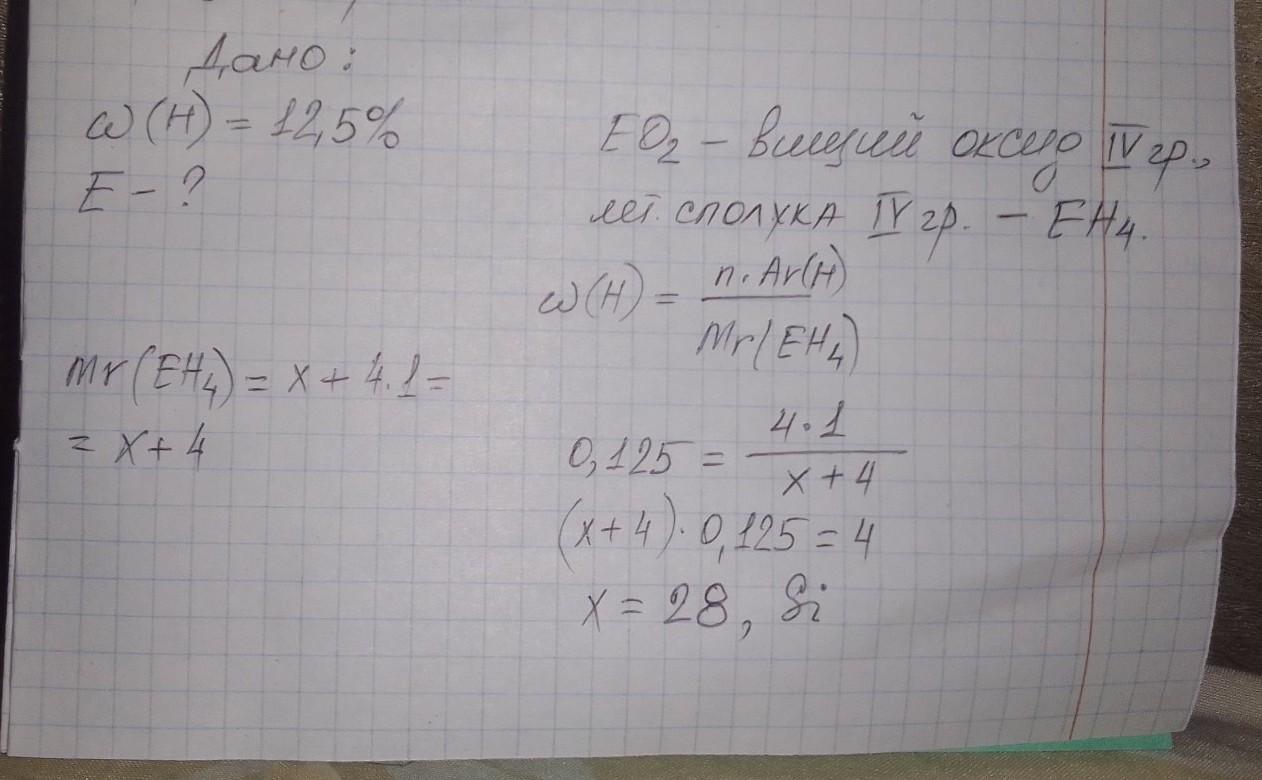 Дано:
ω(H) = 12,5%
E - ?
EO₂ - вищий оксид IV гр.,
лет. сполука IV гр. - EH₄.
ω(H) = n·Ar(H) / Mr(EH₄)
Mr(EH₄) = x + 4·1 =
= x + 4
0,125 = 4·1 / x + 4
(x + 4)·0,125 = 4
x = 28, Si